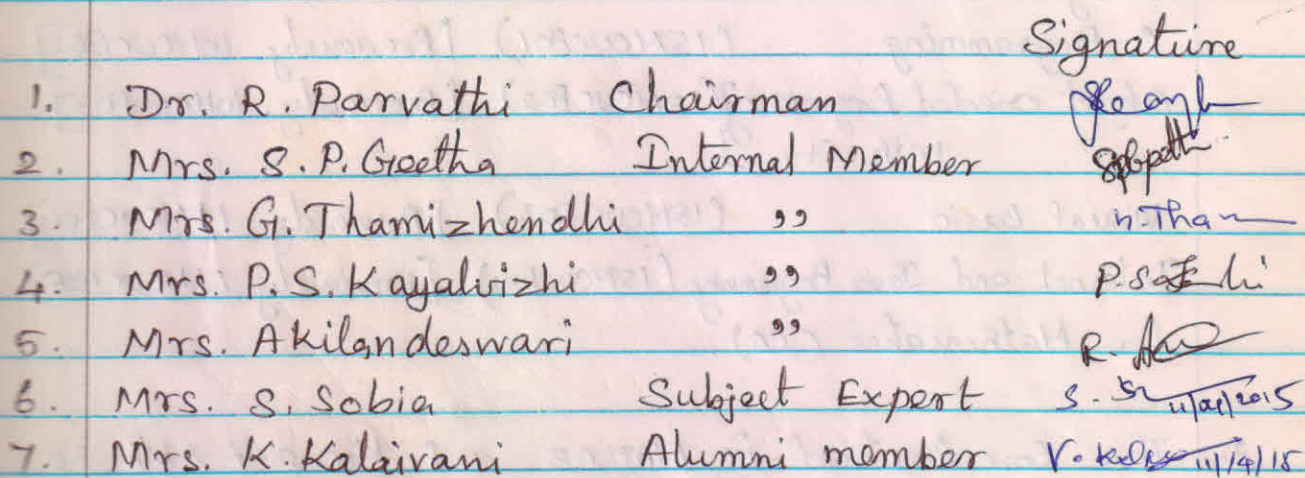 Signature
1. Dr. R. Parvathi Chairman
2. Mrs. S. P. Geetha Internal Member
3. Mrs. G. Thamizhendhi ,, n. Than
4. Mrs. P. S. Kayalvizhi ,,
5. Mrs. Akilandeswari ,, R.
6. Mrs. S. Sobia Subject Expert S.
7. Mrs. K. Kalaivani Alumni member V. 11/4/15